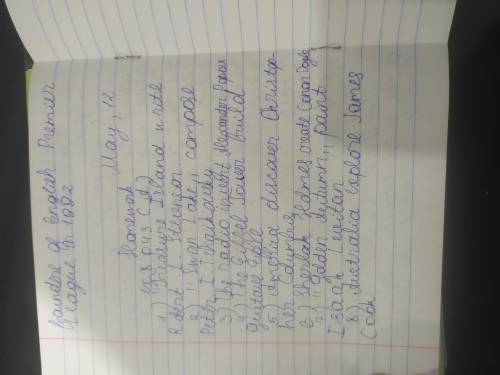 Founders of English Premier
League in 1992
May, 12
Homework
Ex 5 p 43 (
1) "Treasure Island write
Robert L. Stevenson
2) "Swan Lake,, compose
Petr I. Tchaikovsky
3) The radio invent Alexander Popov
4) The Eiffel Tower build
Gustave Eiffel
5) America discover Christop-
her Columbus
6) Sherlok Holmes create Conan Doyle
7) "Golden Autumn,, paint
Isaak Levitan
8) Australia explore James
Cook